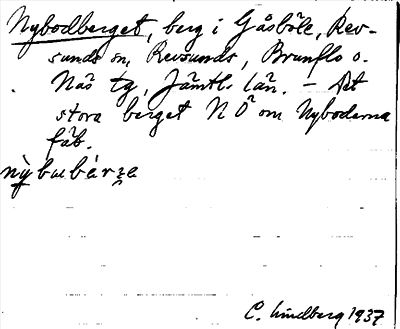 Nybodberget, berg i Gåsböle, Rev-
sunds sn, Revsunds, Brunflo o.
Näs tg, Jämtl. län. – Det
stora berget NÖ om Nyboderna
fäb.
C. Lindberg 1937